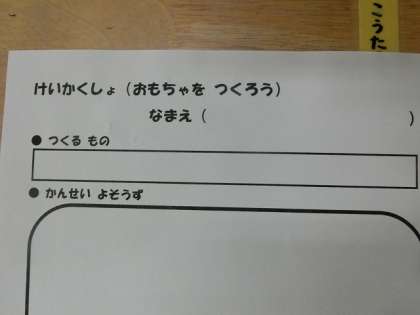 こうた
けいかくしょ（おもちゃを つくろう）
なまえ（　　　　　　　　　　）
● つくる もの
● かんせい よそうず